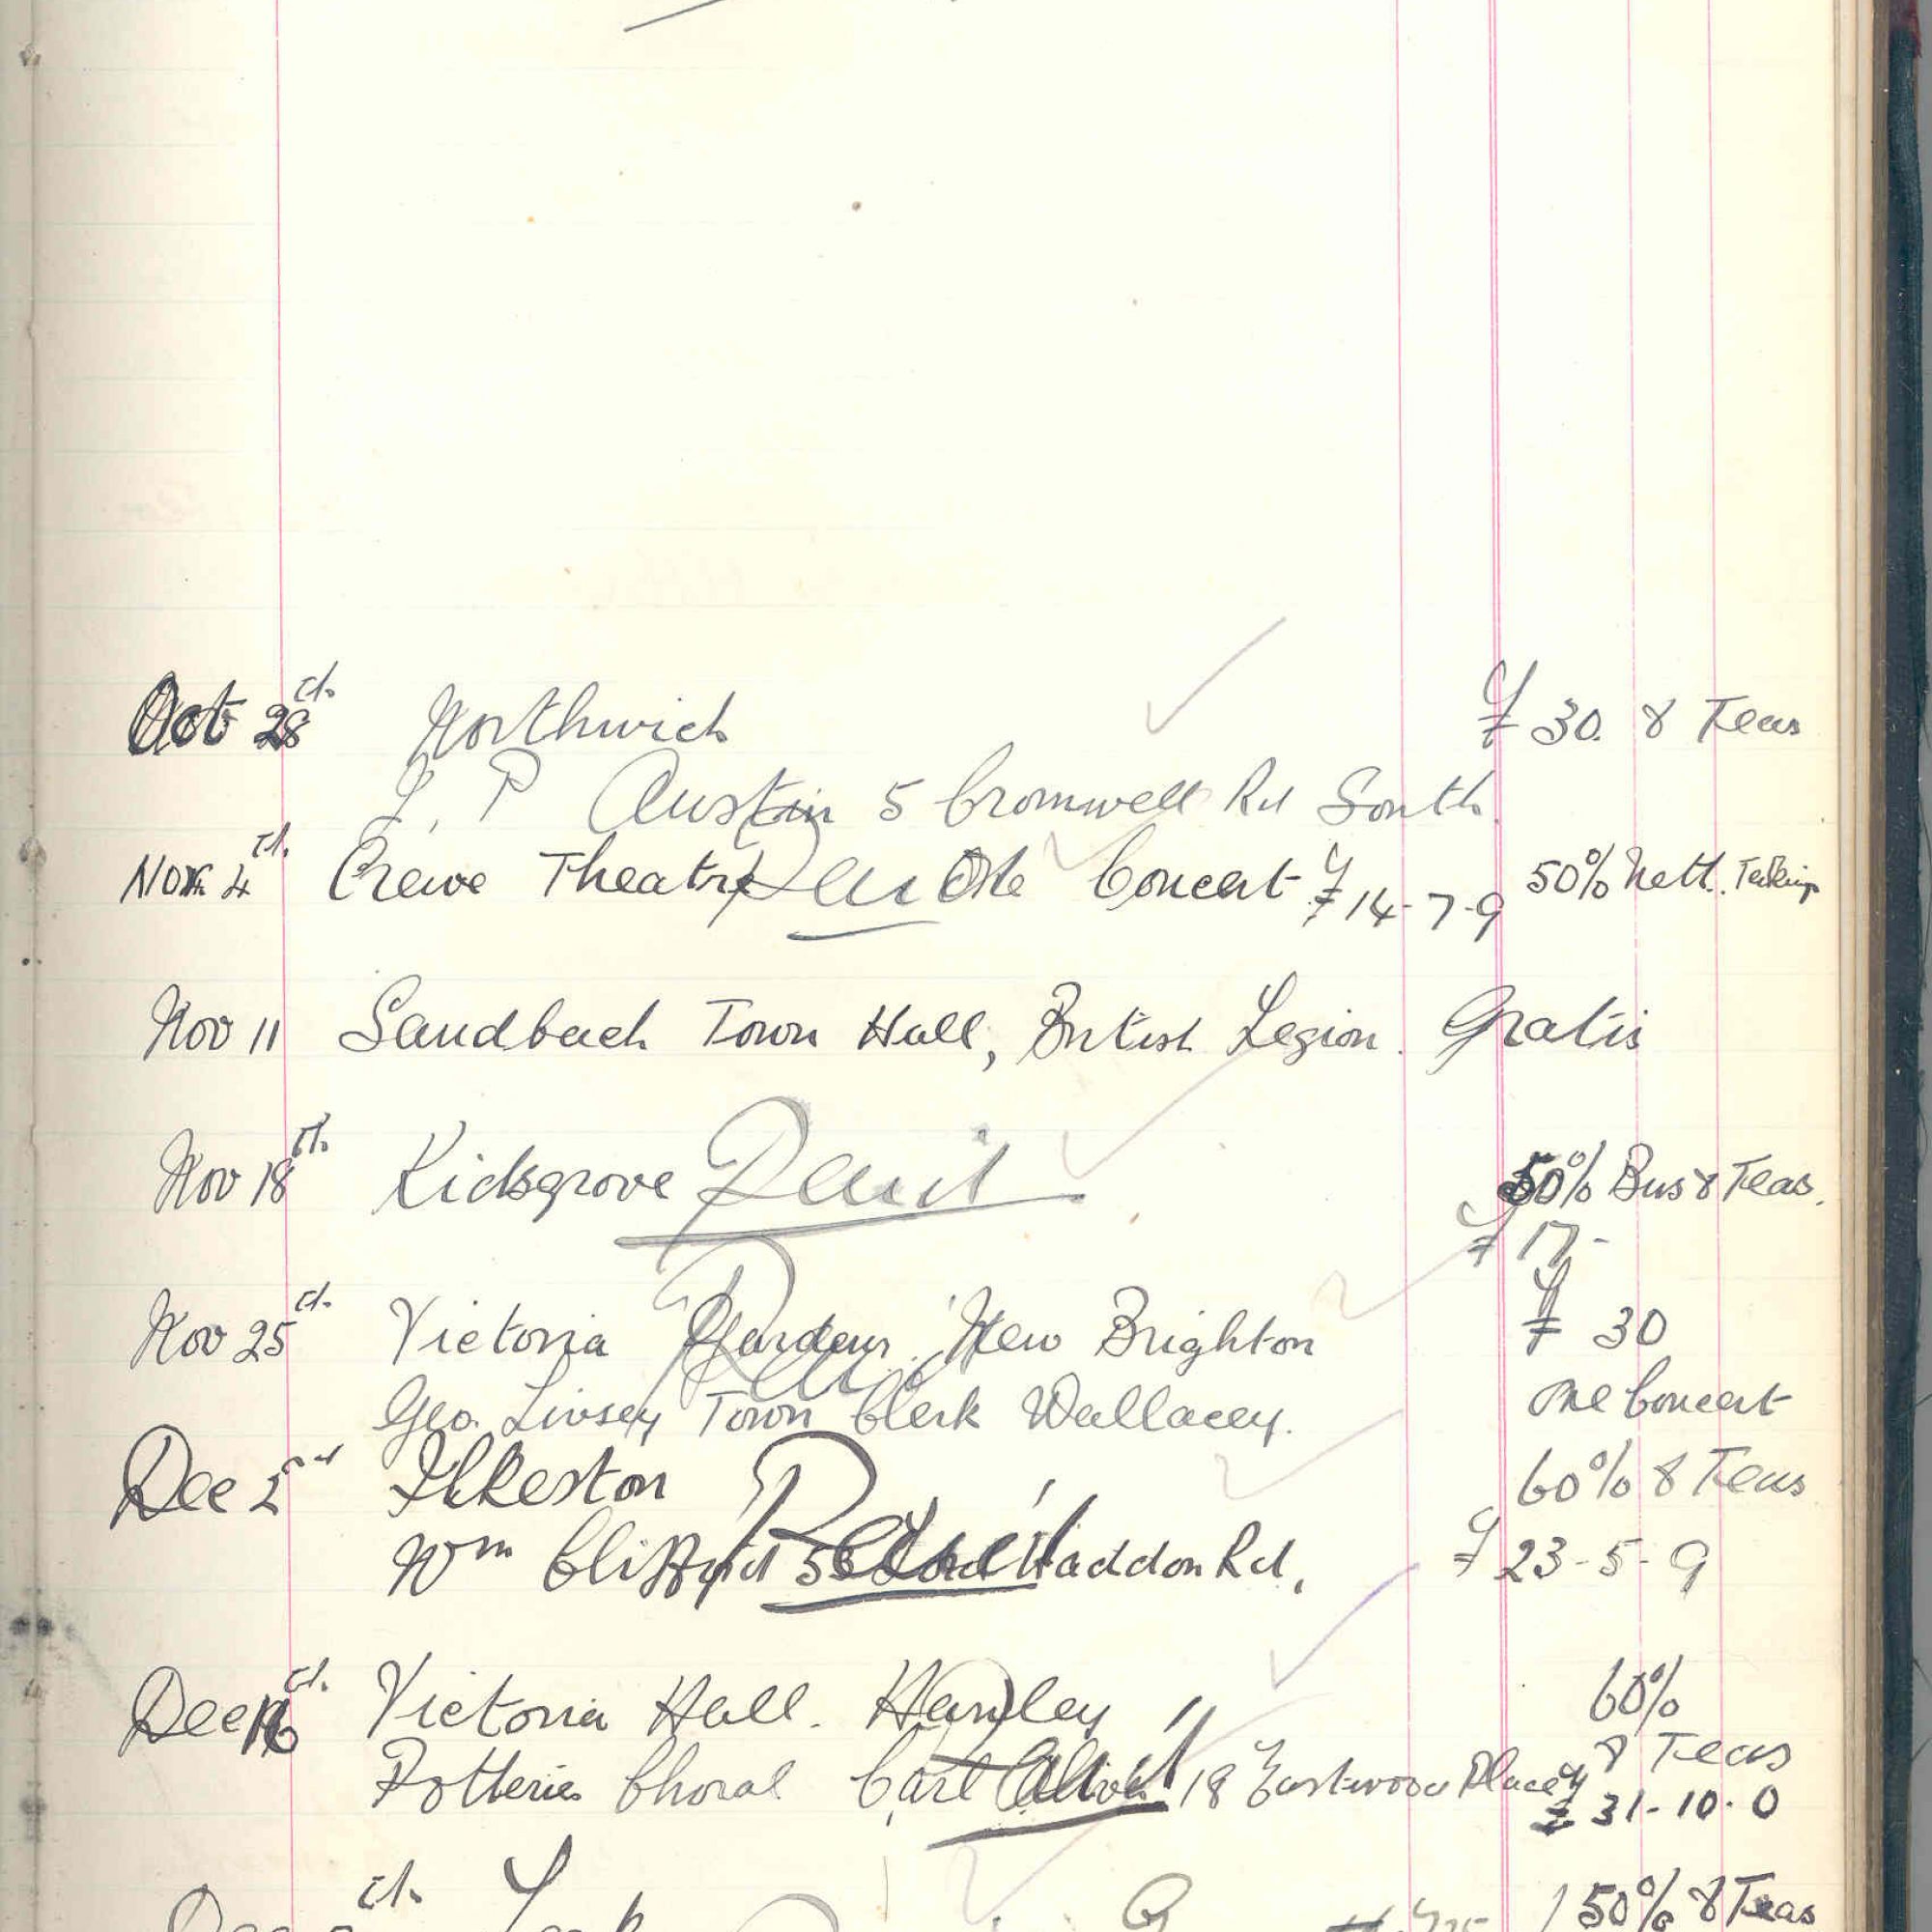 Oct 28th Northwich £30. & Teas
L. P Austin 5 Cromwell Rd South.
Nov 4th Crewe Theatre Paid One Concert £14-7-9 50% Nett. Takings
Nov 11 Sandbach Town Hall, British Legion. Gratis
Nov 18th Kidsgrove Paid 50% Bus & Teas.
£17-
Nov 25th Victoria Gardens. New Brighton £30
Paid
Geo. Livsey Town Clerk Wallacey. One Concert
Dec 2nd Ilkeston 60% & Teas
Wm Clifford 56 Haddon Rd. £23-5-9
Paid
Dec 16th Victoria Hall. Hanley 60%
& Teas
Potteries Choral Carl Oliver 18 Eastwood Place £31-10-0
Paid
50% & Teas